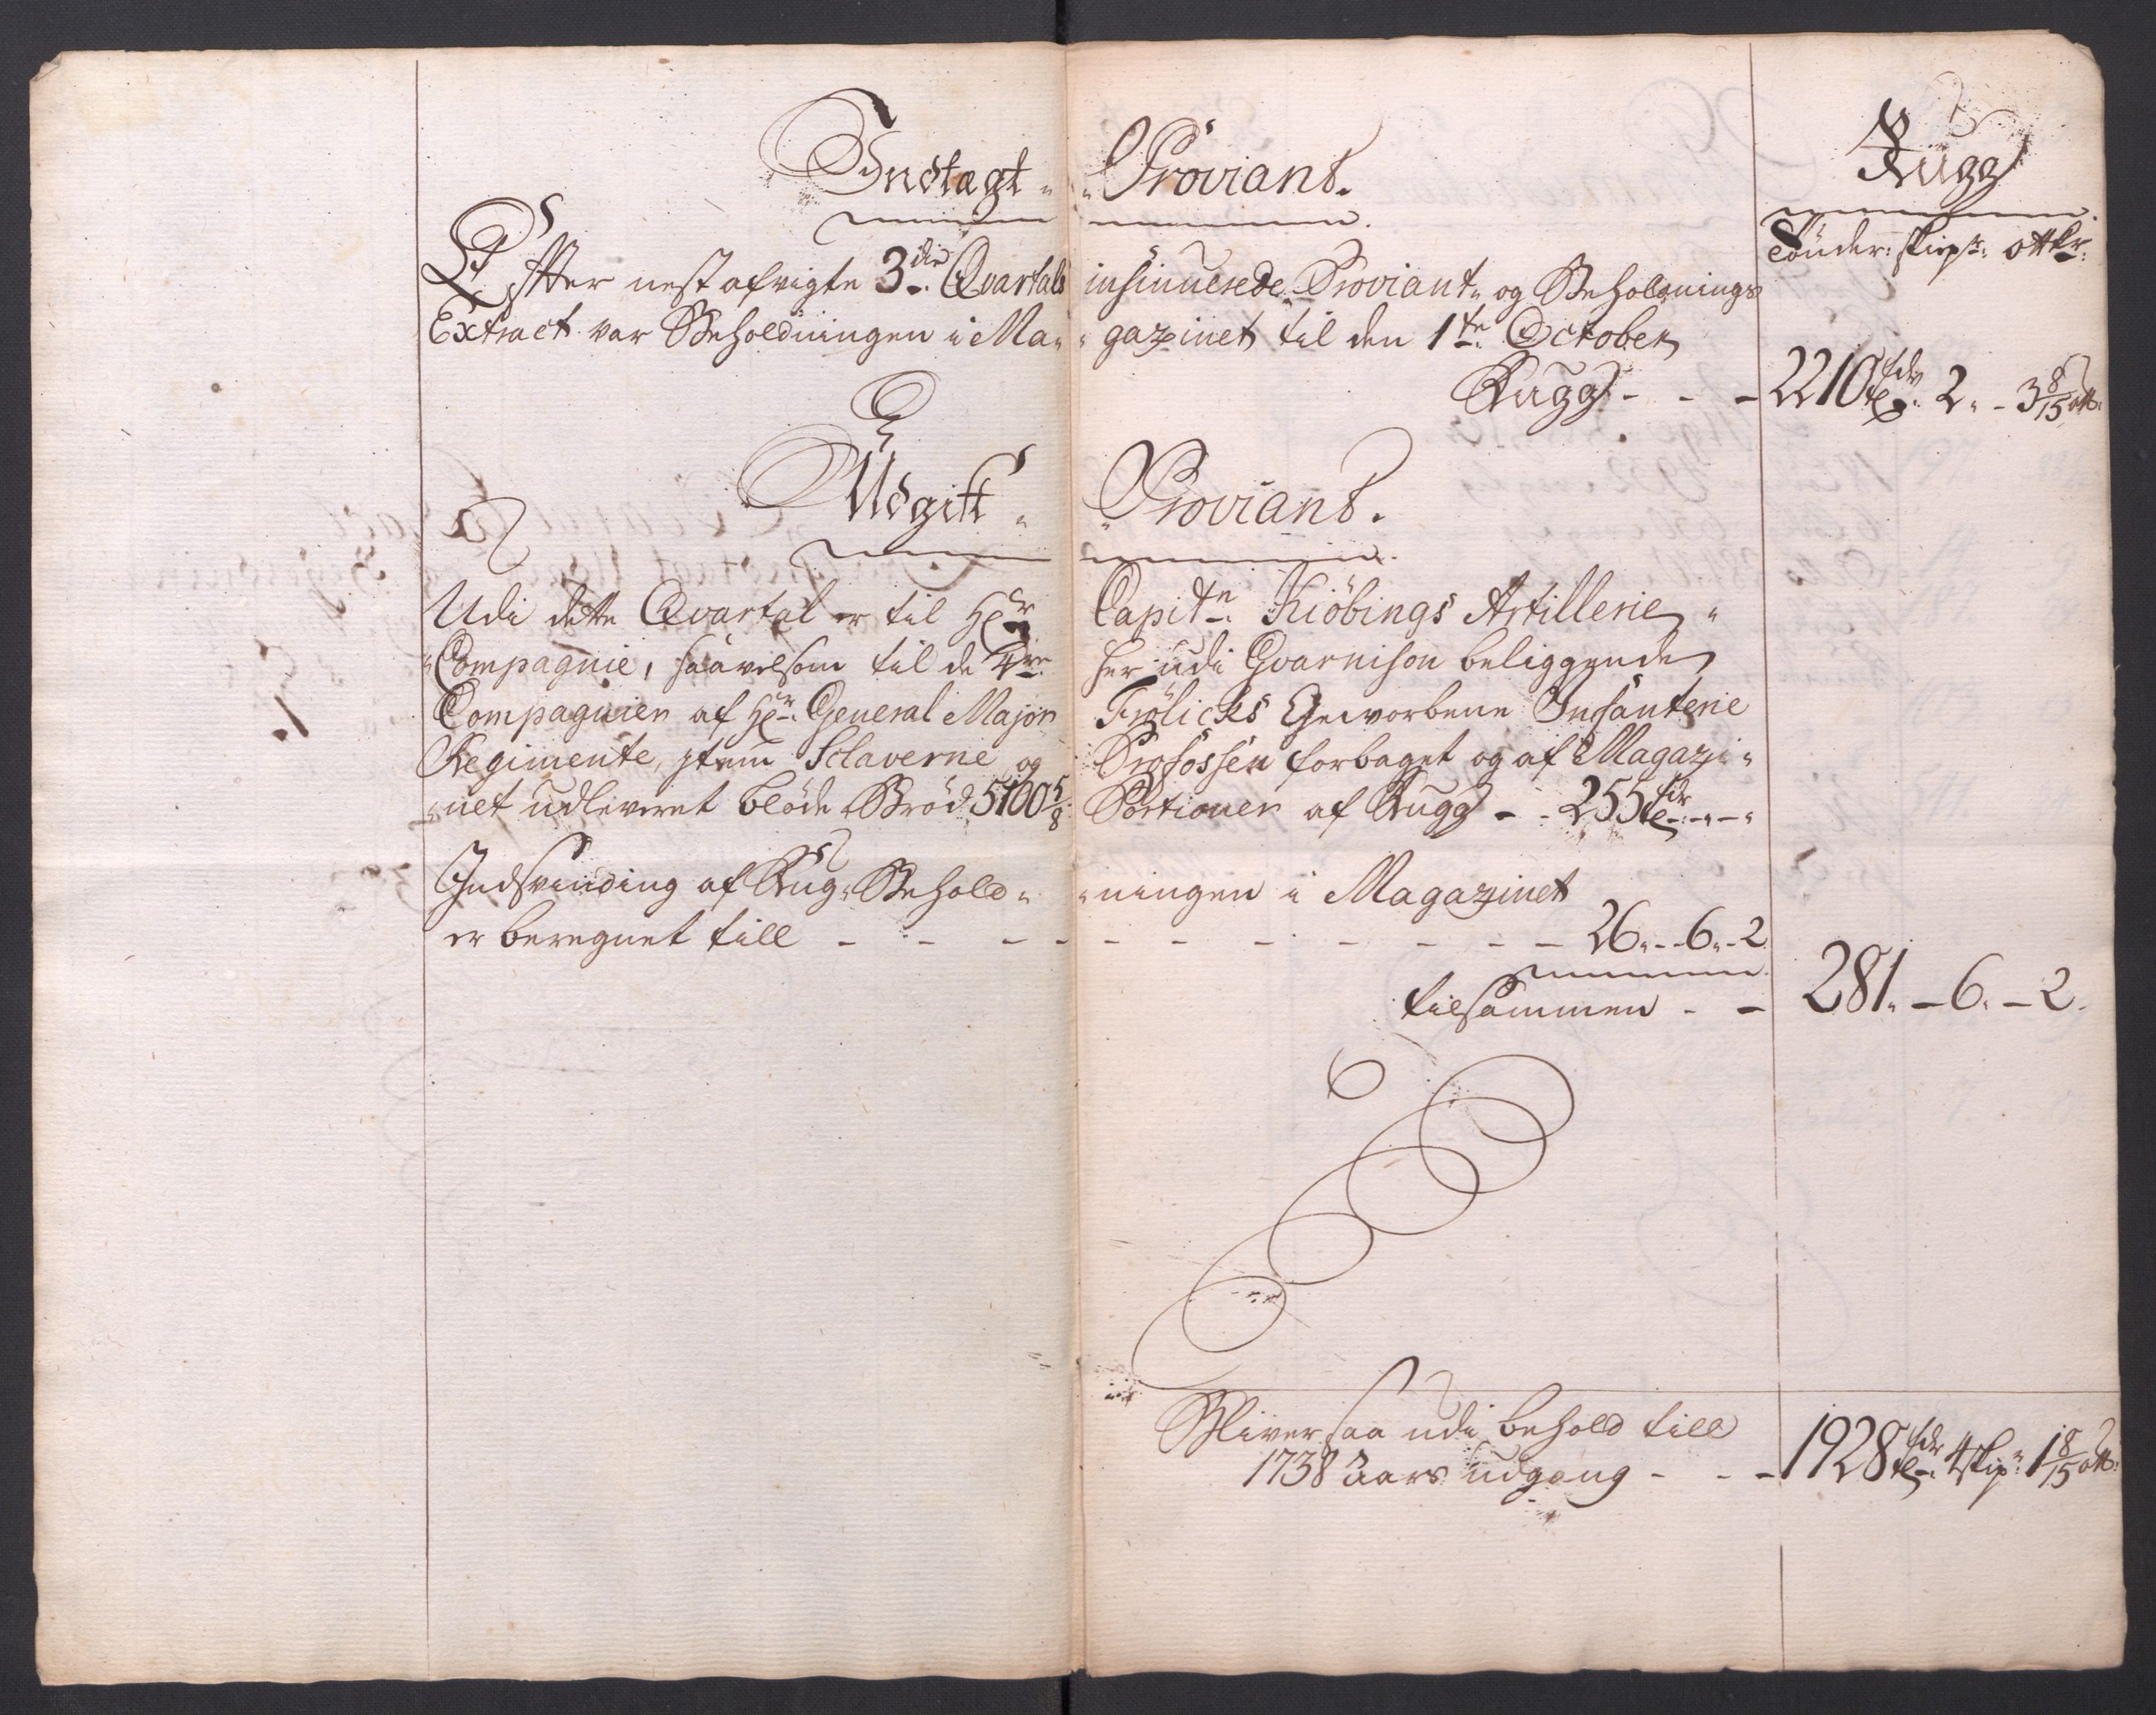 Indtægt Proviant.
Rugg
Tönder: skiep: ottkr:
Effter nest afvigte 3die Qvartals insinuerede Proviant- og Beholdnings
Extract var Beholdningen i Ma- gazinet til den 1te October
Rugg - - - 2210 tdr 2. - 3 8/15 ott:
Udgift Proviant.
Udi dette Qvartal er til Hr Capitn Kiöbings Artillerie
Compagnie, saavelsom til de 4re her udi Gvarnison beliggende
Compagnier af Hr: General Major Frölicks Geworbene Infanterie
Regimente, jtem Sclaverne og Profossen forbaget og af Magazi-
net udleveret bløde Brød 5100 5/8 Portioner af Rugg - - 255 tdr - -
Indsvinding af Rug Behold- ningen i Magazinet
er beregnet till - - - - - - - - - 26. - 6. - 2
tilsammen - - 281. - 6. - 2.
Bliver saa udi behold till
1738 aars udgang - - - 1928 tdr 4 skip: 1 8/15 ott: